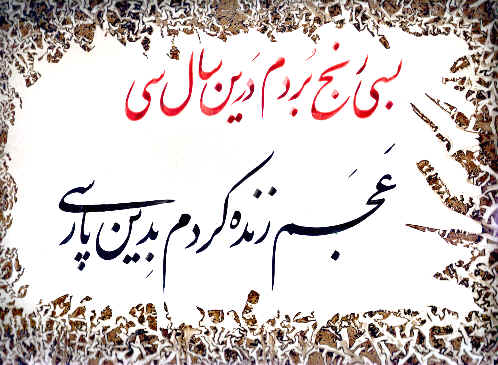 بسی رنج بُردم دَرین سال سی
عَجَم زنده کردم بِدین پارسی